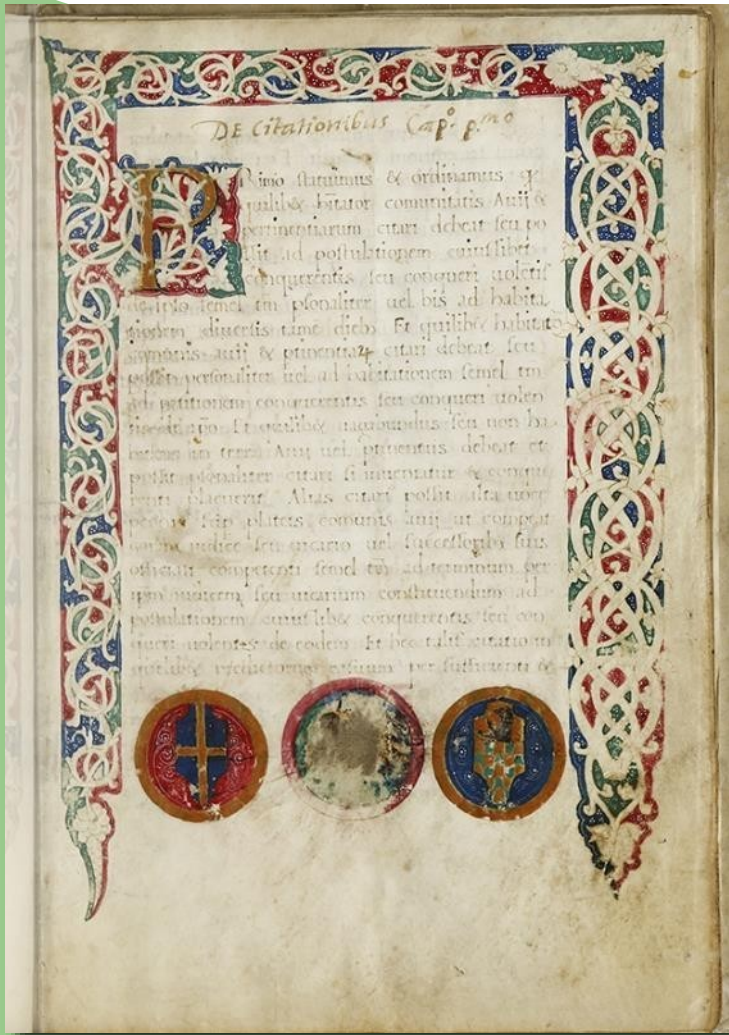 DE Citationibus Cap.º p.mo
PRimo statuimus & ordinamus qd
quilib& hītator comunitatis Auij &
pertinentiarum citari debeat seu po
ssit ad postulationem cuiuslibet
conquerentis seu conqueri uolentis
de ipso semel tm psonaliter uel bis ad habita
tionem diuersis tamē dieb3 Et quilib& habitator
comunis auij & ptinentia24 citari debeat seu
possit personaliter uel ad habitationem semel tm
ad petitionem conquerentis seu conqueri uolen
Et quilib& uagabundus seu non ha
bitans in terra Auij uel ptinentiis debeat et
possit psonaliter citari si inueniatur & conque
renti placuerit Alias citari possit alta uoce
plateis comunis auij ut compeat
iudice seu uicario uel successorib3 suis
officiali competenti semel tm ad terminum per
ipm iudicem seu uicarium constituendum ad
postulationem cuiuslib& conquerentis seu con
queri uolentis de eodem Et hec talis citatio in
per sufficienti &